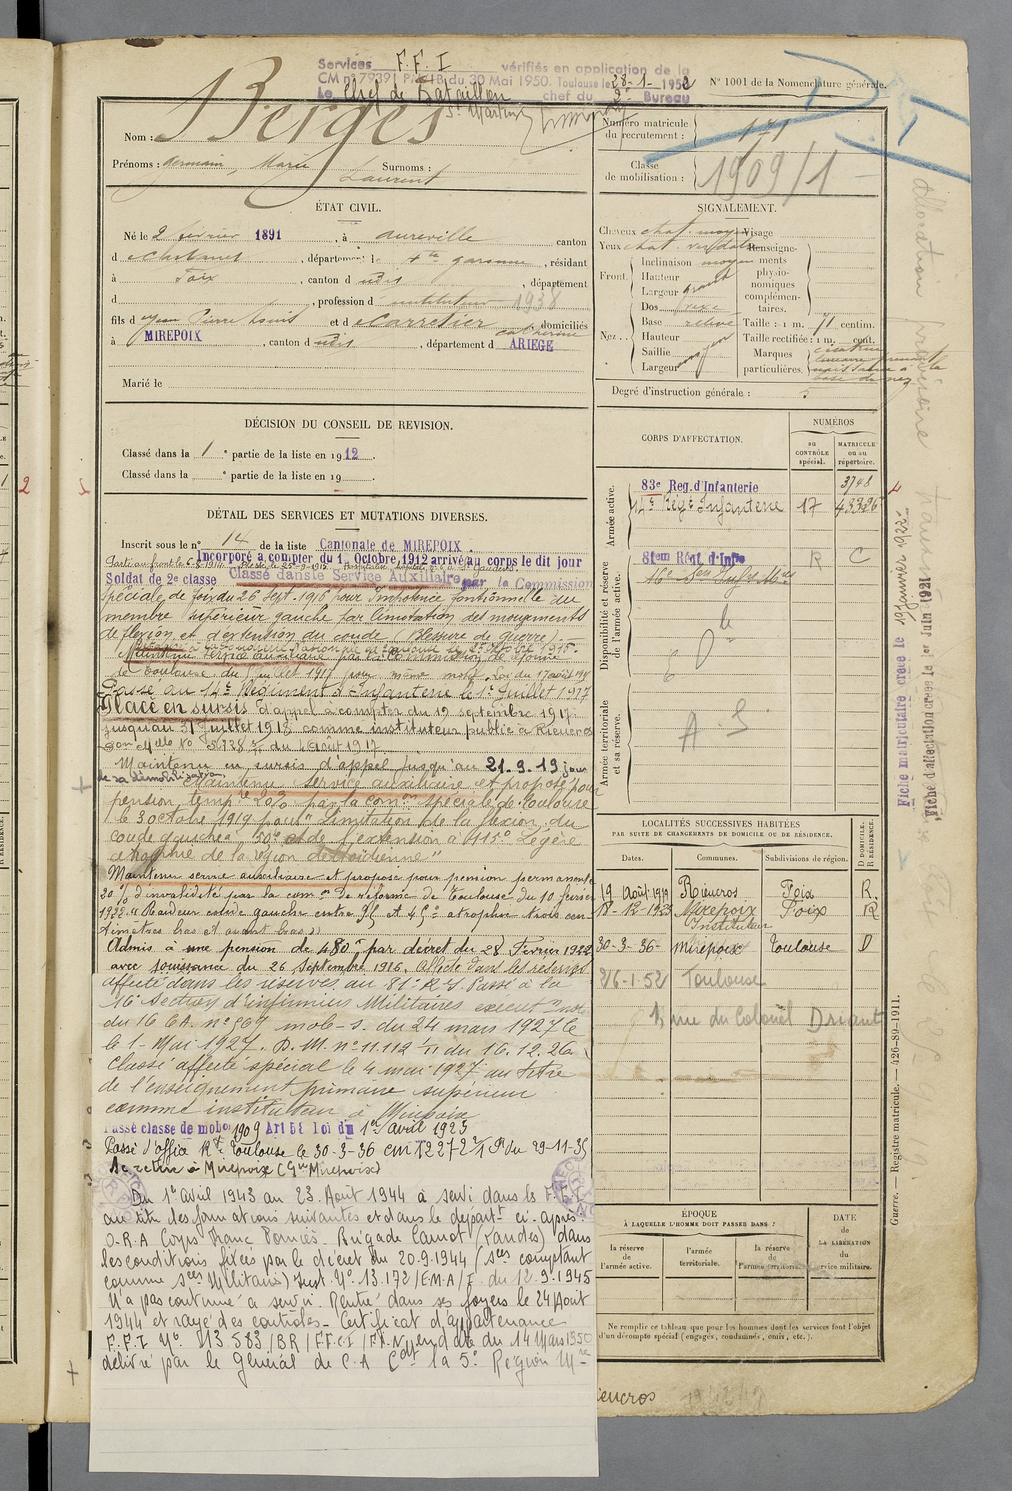 Services F.F.I vérifiés en application de la
CM n° 7939 du 30 Mai 1950. Toulouse le 28-1-1952
Le Chef de Bataillon chef du 2e Bureau
St Martin
N° 1001 de la Nomenclature générale.
Nom : Berges
Prénoms : Germain, Marie Surnoms :
Laurent
Numéro matricule
du recrutement : 171
Classe
de mobilisation : 1909/1
ÉTAT CIVIL.
Né le 2 février 1891, à Aureville canton
d , département de Hte Garonne, résidant
à Foix, canton d udis, département
d , profession d instituteur 1938
fils d Jean Pierre Louis et d Carretier Catherine domiciliés
à MIREPOIX, canton d udis, département d ARIEGE
Marié le
SIGNALEMENT.
Cheveux chat. moy. Visage
Yeux chat. Renseigne-
ments
physio-
nomiques
complémen-
taires.
Front. Inclinaison moyen
Hauteur
Largeur grand
Nez Dos
Base relevé
Hauteur
Saillie moyen
Largeur
Taille : 1 m. 71 centim.
Taille rectifiée : 1 m. cent.
Marques
particulières. cicatrice
Degré d'instruction générale : 3
DÉCISION DU CONSEIL DE REVISION.
Classé dans la 1 e partie de la liste en 1912.
Classé dans la e partie de la liste en 19 .
DÉTAIL DES SERVICES ET MUTATIONS DIVERSES.
Inscrit sous le n° 14 de la liste Cantonale de MIREPOIX.
Incorporé a compter du 1 Octobre 1912 arrivé au corps le dit jour
Soldat de 2e classe Classé dans le Service Auxiliaire par la Commission
spéciale de Foix du 26 Sept. 1916 pour Impotence fonctionnelle du
membre supérieur gauche par limitation des mouvements
de flexion et d'extention du coude (Blessure de guerre).
Maintenu service auxiliaire par la Commission de réforme
de Toulouse du juillet 1917 pour même motif. Loi du 17 août 1915
Passé au 14e Régiment d'Infanterie le 1er Juillet 1917
Placé en sursis d'appel à compter du 19 septembre 1917
jusqu'au 31 Juillet 1918 comme instituteur public à Rieucros
du 4 Août 1917
Maintenu en sursis d'appel jusqu'au 21.9.19 jour
de sa démobilisation. Maintenu service auxiliaire et proposé pour
pension temp.re 20% par la comon spéciale de Toulouse
le 30 octobre 1919 pour "Limitation de la flexion du
coude gauche à 50° et de l'extention à 115° Légère
atrophie de la région deltoïdienne"
Maintenu service auxiliaire et proposé pour pension permanente
20% d'invalidité par la comon de réforme de Toulouse du 10 février
1922. Raideur coude gauche entre et 45° atrophie trois cen-
timètres bras et avant bras
Admis à une pension de 480f par décret du 28 Fevrier 1922
avec jouissance du 26 Septembre 1916. Affecté dans les réserves
affecté dans les réserves au 81e R.I. Passé à la
16e Section d'infirmiers Militaires
du 16 C.A. n° 967 mob-s. du 24 mars 1927 le
le 1er Mai 1927. D.M. n° 11.112 1/11 du 16.12.26
Classé affecté spécial le 4 mai 1927 au titre
de l'enseignement primaire supérieur
comme instituteur à Mirepoix
Passé classe de mobon 1909 Art 58 Loi du 1er Avril 1923
Passé d'office Rt Toulouse le 30-3-36 du 29-11-35
Se retire à Mirepoix (Gie Mirepoix)
Du 1er avril 1943 au 23 Août 1944 a servi dans les F.F.I
au titre des formations suivantes et dans le départt ci-après
O.R.A Corps Franc Pomiès - Brigade Carnot (Landes) dans
les conditions fixées par le décret du 20.9.1944 (sces comptant
comme sces militaires) Inst. N° 13.172/EMA/I du 12.9.1945
N'a pas continué à servir. Rentré dans ses foyers le 24 Août
1944 et rayé des contrôles - Certificat d'appartenance
F.F.I N° 113.583/BR/FFCI/FFN en date du 14 Mars 1950
délivré par le Général de C.A Cdt la 5e Région Mre
CORPS D'AFFECTATION.
NUMÉROS
au
CONTRÔLE
spécial.
MATRICULE
ou au
répertoire.
Armée active.
83e Reg. d'Infanterie 3748
14e Régt Infanterie 17 43326
Disponibilité et réserve
de l'armée active.
81em Régt. d'Infie R C
16e Son Infirs Mres
Armée territoriale
et sa réserve.
A S
LOCALITÉS SUCCESSIVES HABITÉES
PAR SUITE DE CHANGEMENTS DE DOMICILE OU DE RÉSIDENCE.
Dates. Communes. Subdivisions de région. D DOMICILE. R RÉSIDENCE.
19 Août 1919 Rieucros Foix R.
18-12-1923 Mirepoix Foix R
Instituteur
30-3-36- Mirepoix Toulouse D
26-1-52 Toulouse
1, rue du Colonel Driant
ÉPOQUE
À LAQUELLE L'HOMME DOIT PASSER DANS :
la réserve
de
l'armée active.
l'armée
territoriale.
la réserve
de
l'armée territoriale.
DATE
de
LA LIBÉRATION
du
service militaire.
Ne remplir ce tableau que pour les hommes dont les services font l'objet
d'un décompte spécial (engagés, condamnés, omis, etc.).
Fiche matriculaire créée le 19 janvier 1922
Fiche d'affectation créée le 1er Juin 1921
Guerre. — Registre matricule. — 426-89-1911.